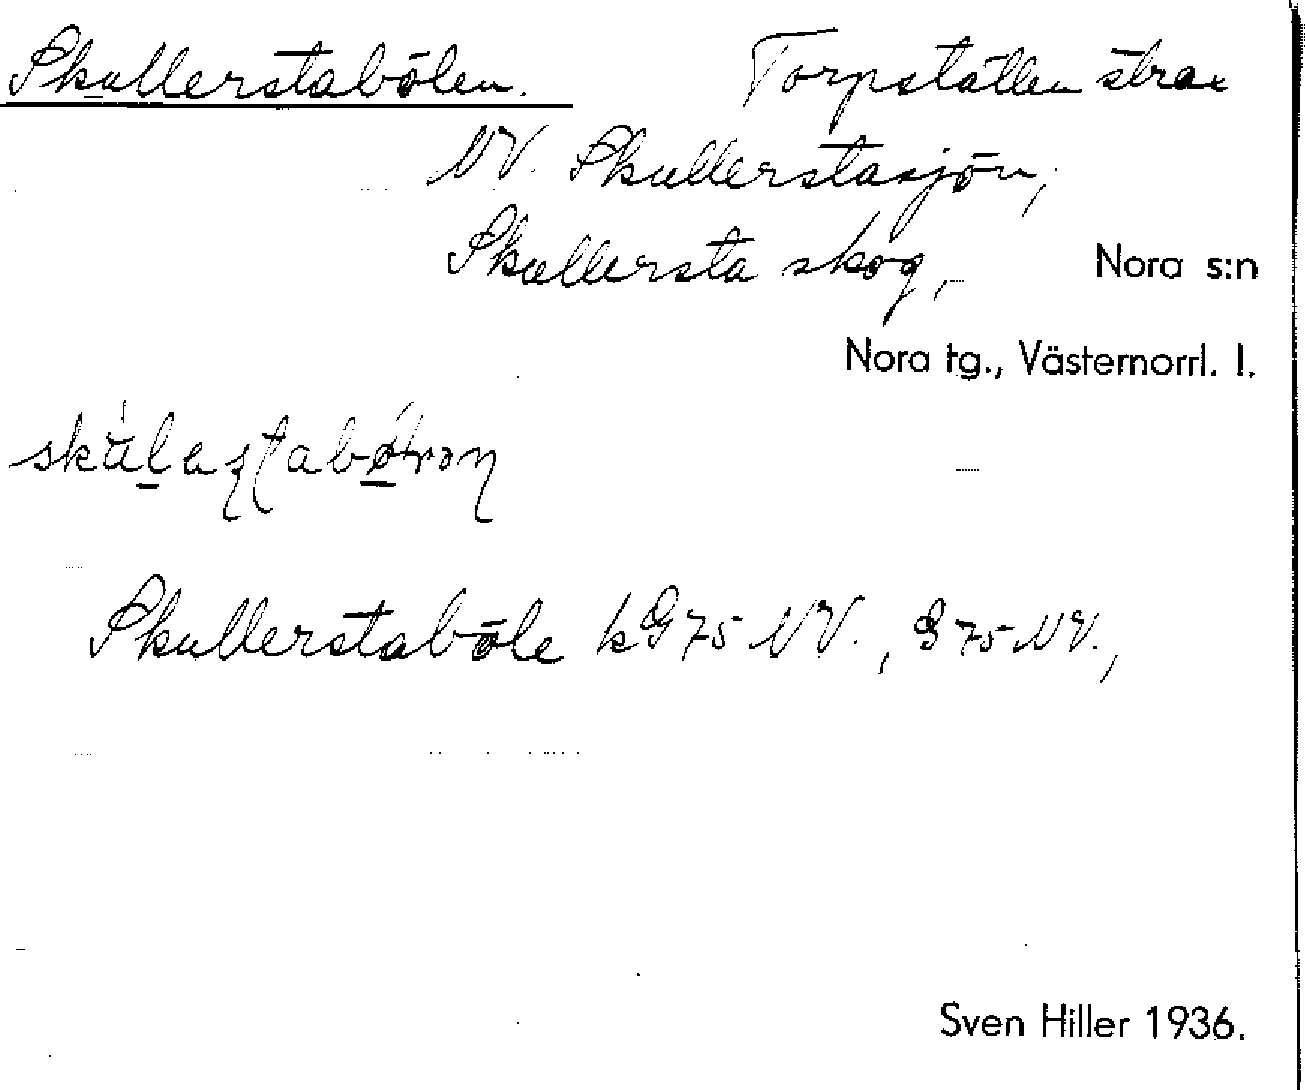 Skullerstabölen. Torpställen strax
NV. Skullerstasjön,
Skullersta skog, Nora s:n
Nora tg., Västernorrl. l.
Skullerstaböle kG75 NV., G 75 NV.,
Sven Hiller 1936.